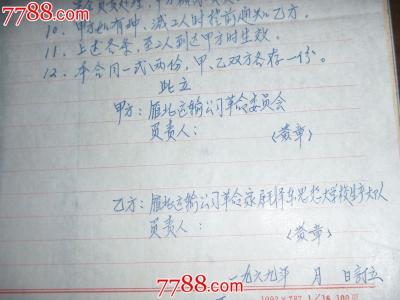 7788.com
10. 甲方如有增、减工人时提前通知乙方。
11. 上述各条,至工人到达甲方时生效。
12. 本合同一式两份,甲、乙双方各存一份。
此立
甲方:雁北运输公司革命委员会
负责人:
(黄章)
乙方:雁北运输公司革命家属毛泽东思想大学校生产大队
负责人:
(黄章)
一九六九年 月 日订立
1092×787 1/16 100页
7788.com